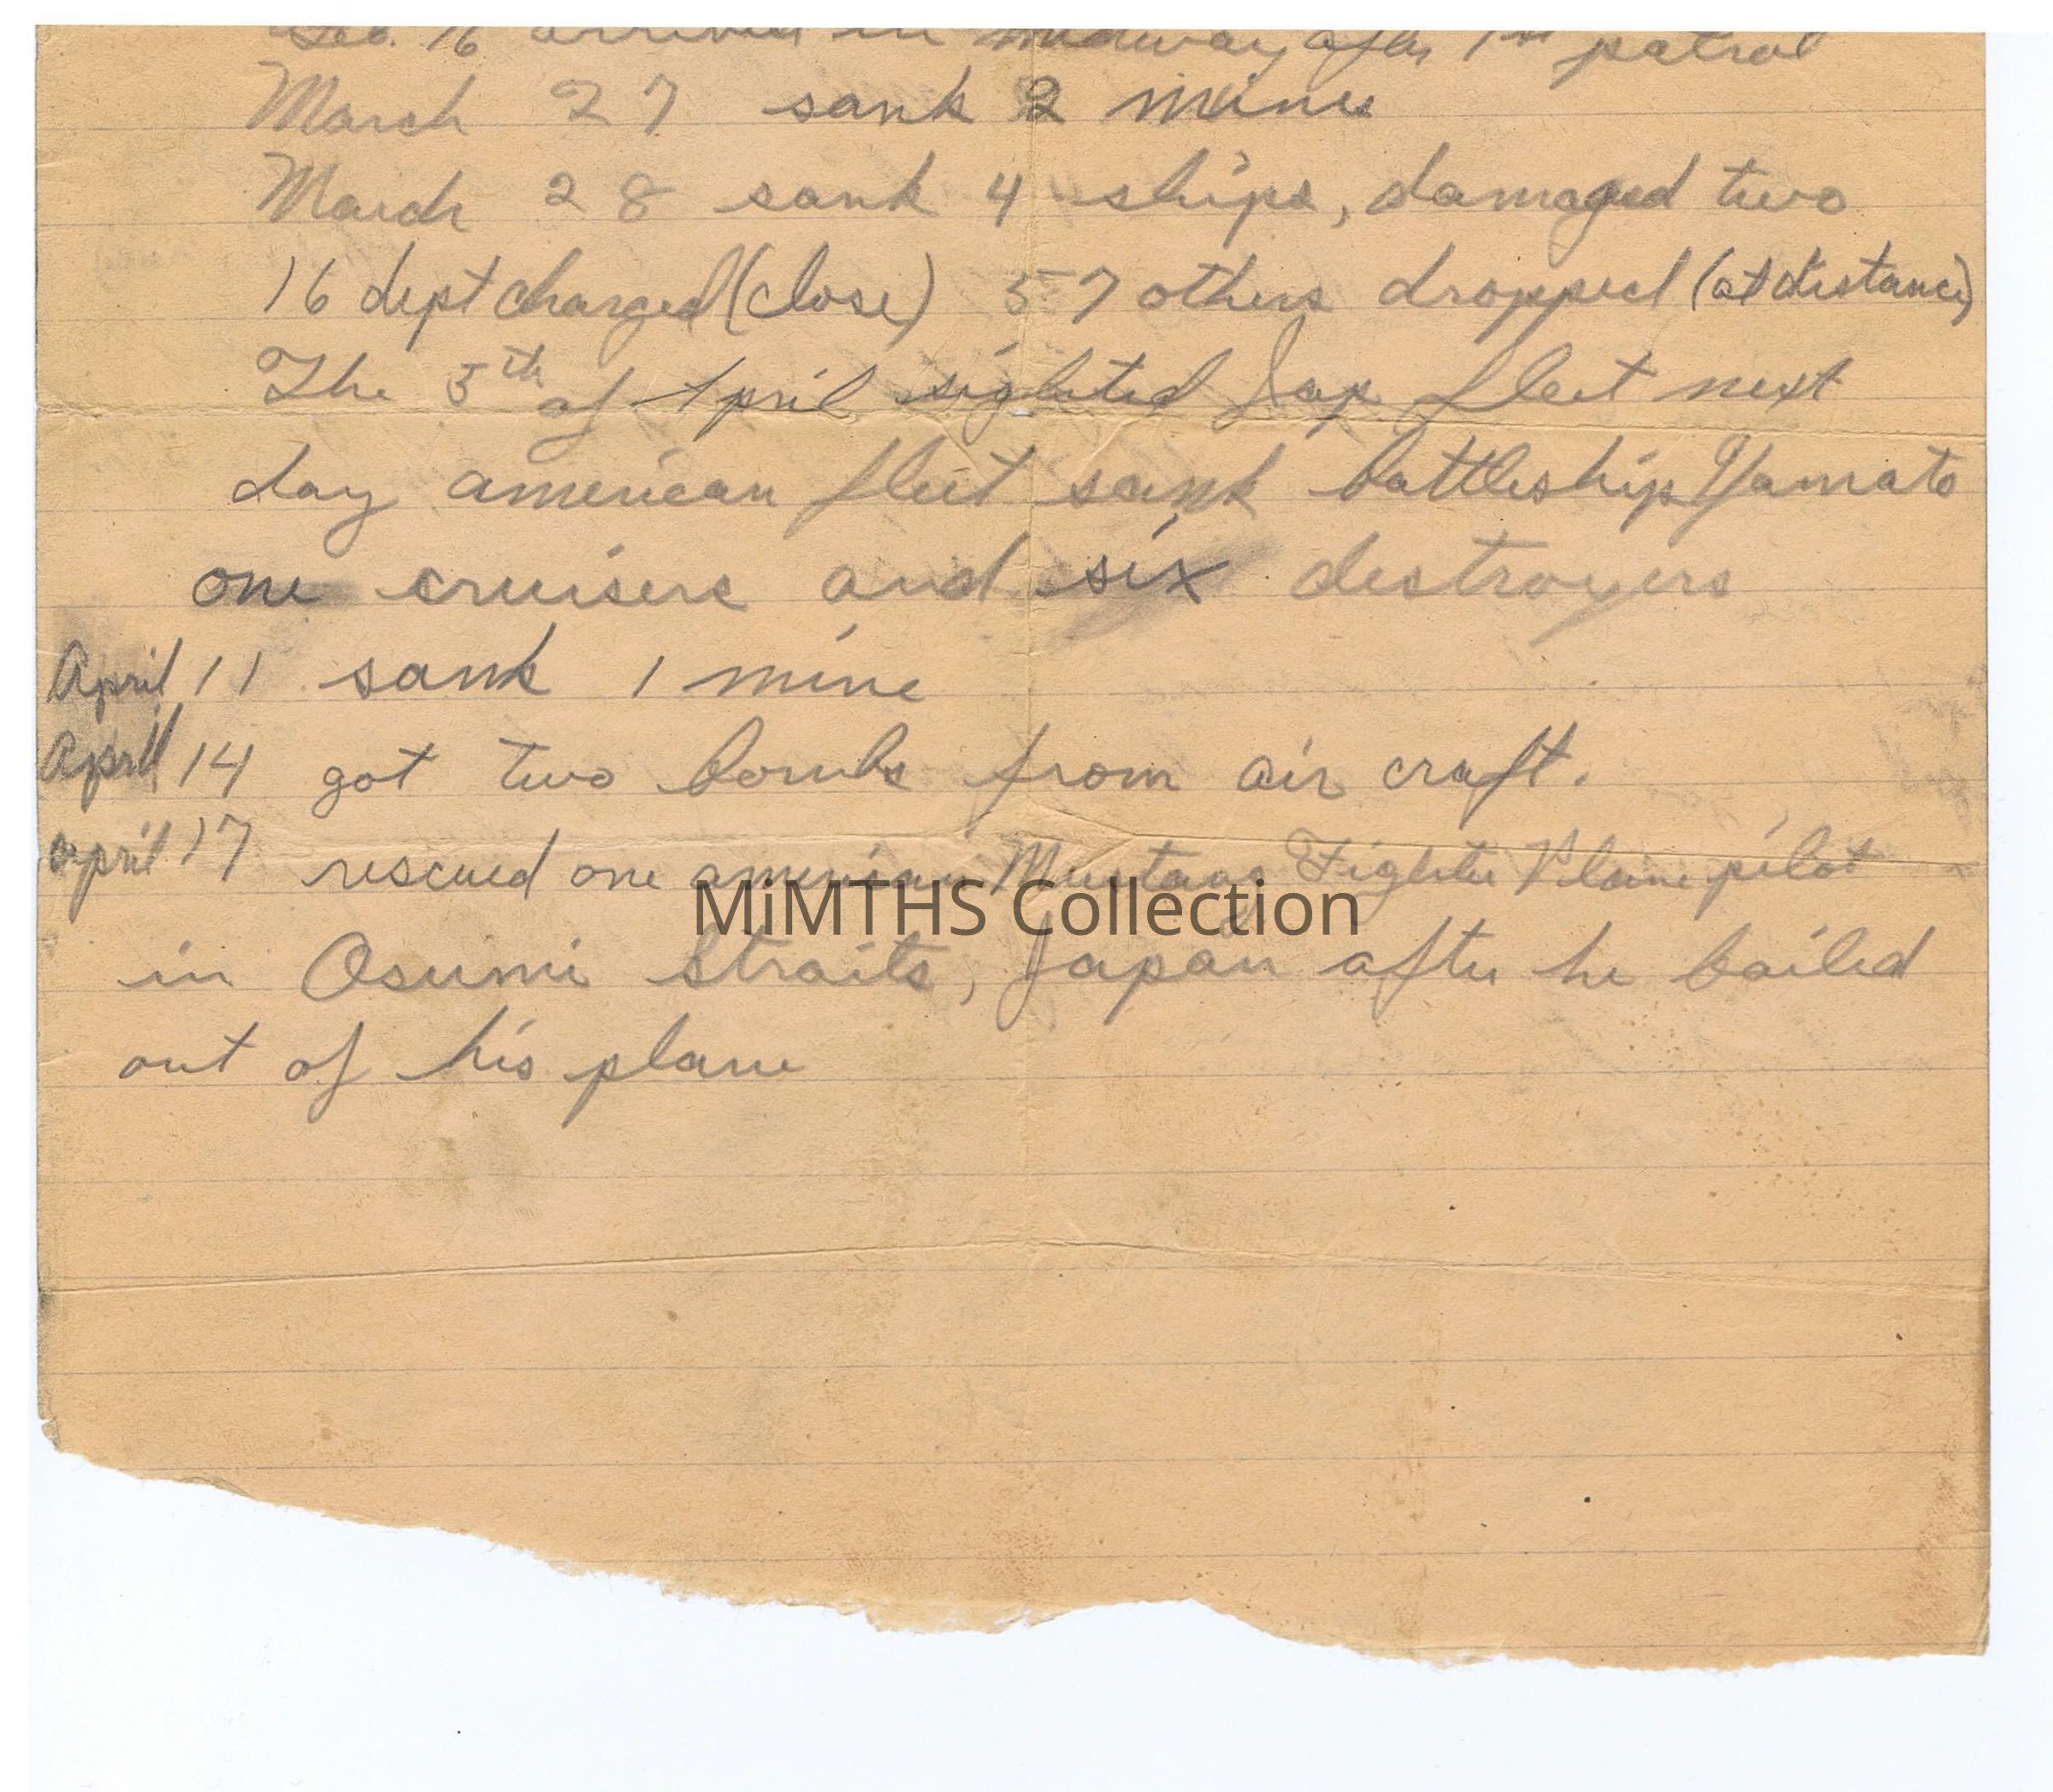 Feb. 16 arrived in Midway after 1st patrol
March 27 sank 2 mines
March 28 sank 4 ships, damaged two
16 dept charged (close) 57 others dropped (at distance)
The 5th of April sighted Jap fleet next
day american fleet sank battleship Yamato
one cruisers and six destroyers
April 11 sank 1 mine
April 14 got two bombs from air craft.
april 17 rescued one american Mustang Fighter Plane pilot
MiMTHS Collection
in Osumi Straits, Japan after he bailed
out of his plane